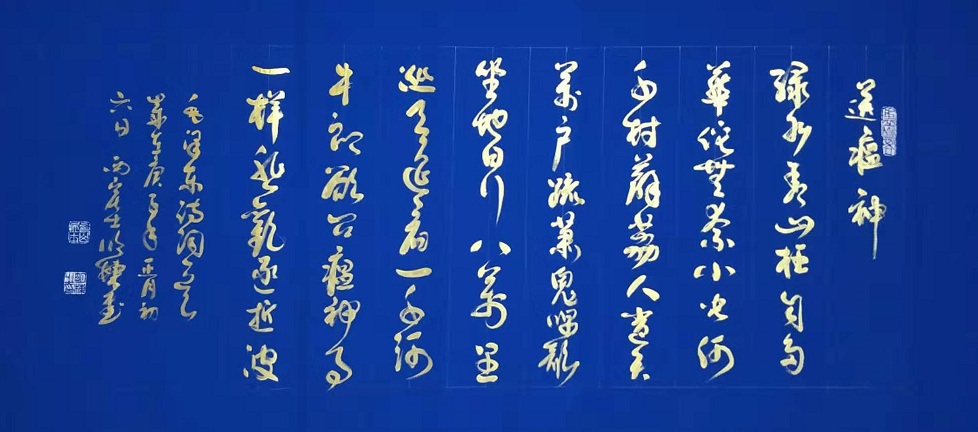 送瘟神
绿水青山枉自多
華佗無奈小虫何
千村薜荔人遗矢
萬户疏萧鬼唱歌
坐地日行八萬里
巡天遥看一千河
牛郎欲问瘟神事
一样悲歡逐逝波
毛泽东诗词
岁在庚子年正月初
六日 书